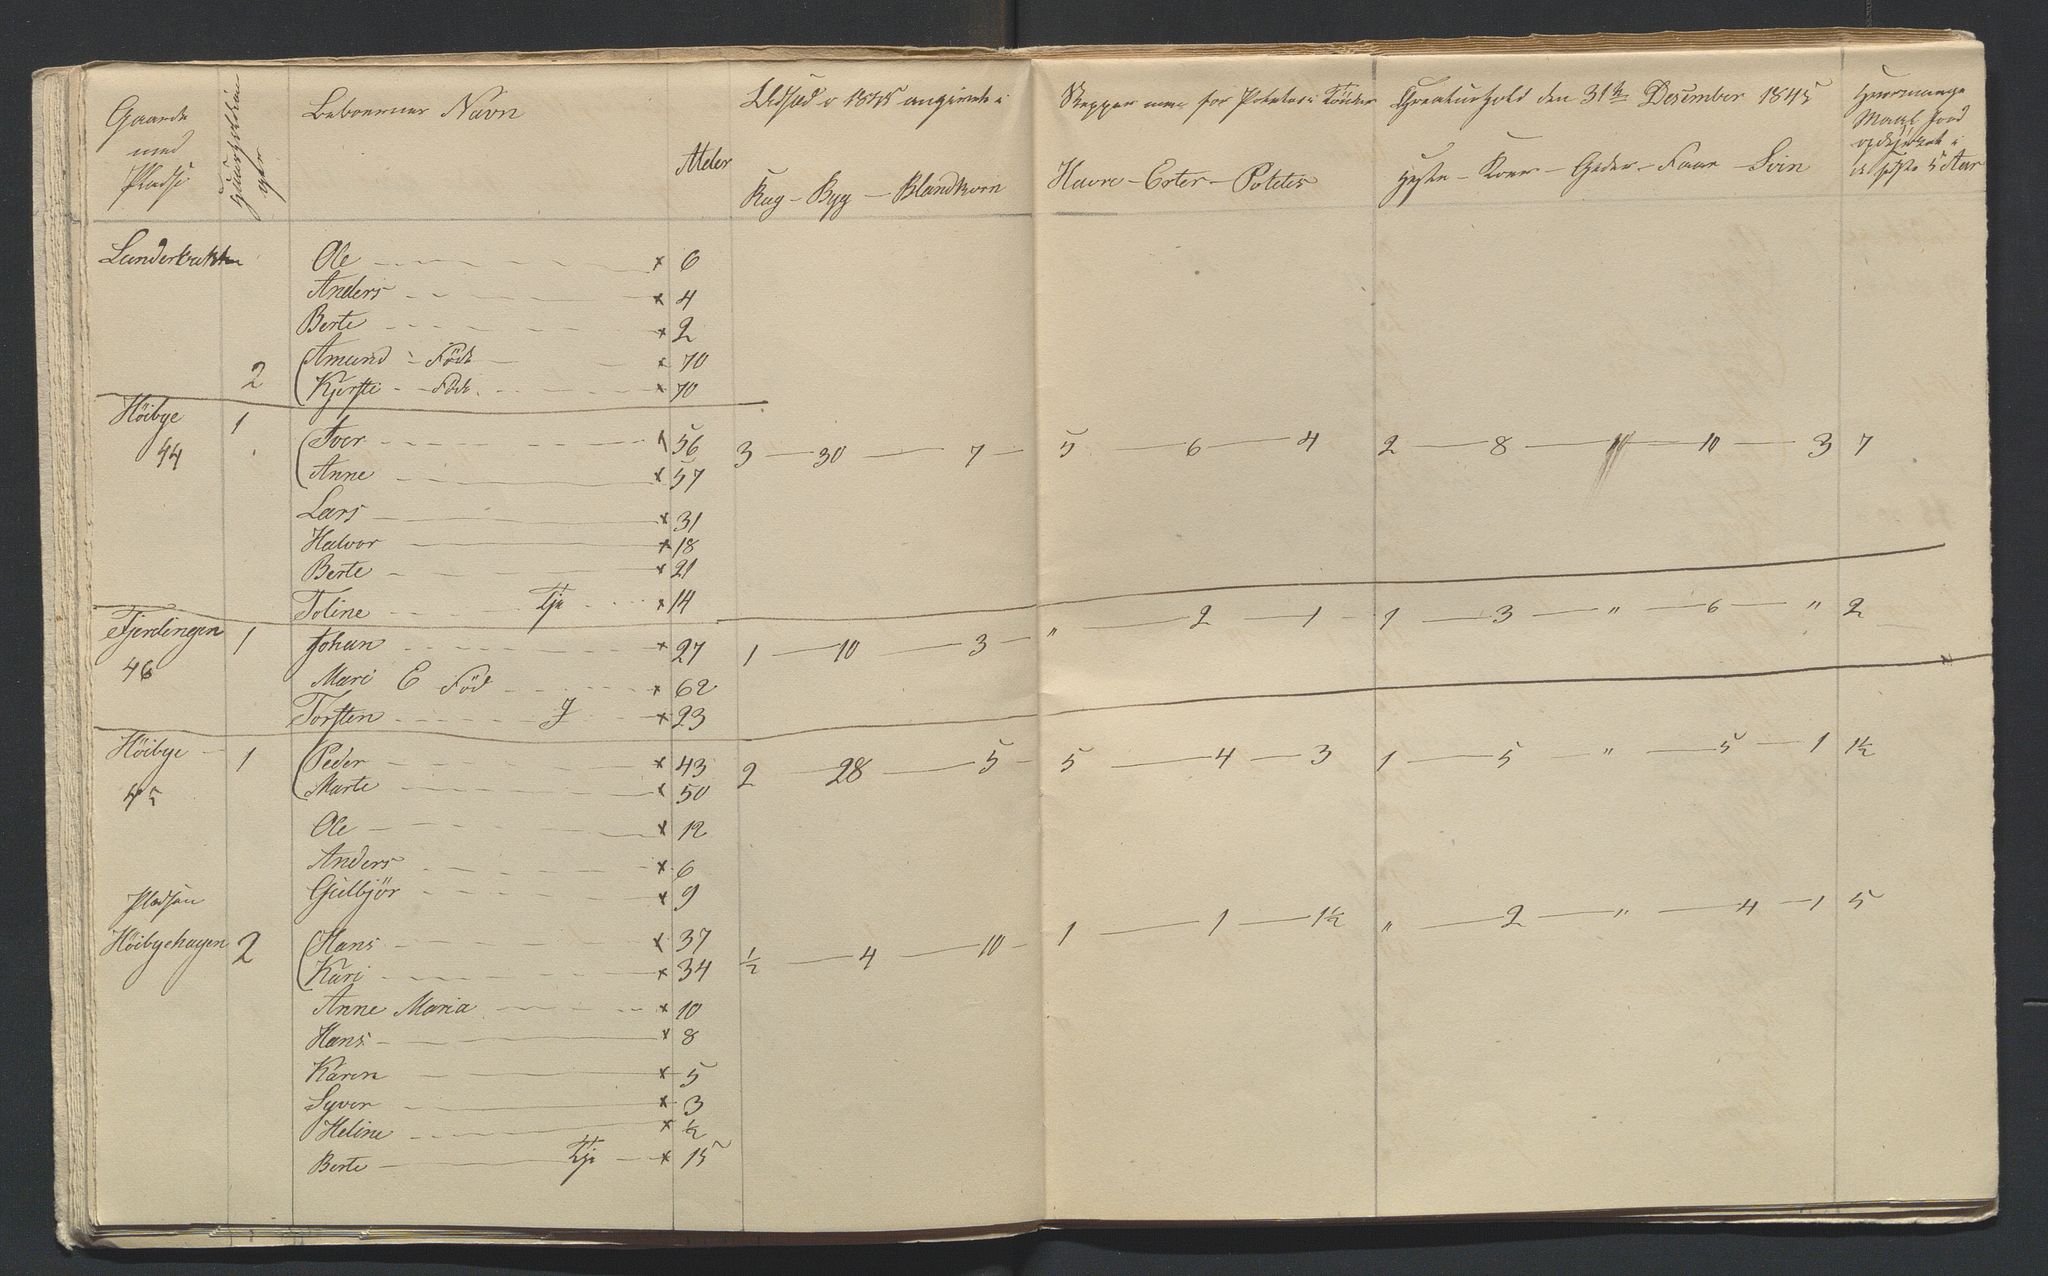 Gaarde med Pladse
Beboernes Navn
Alder
Udsæd i 1845 angivet i Skjepper men for Poteter i Tönder
Rug - Byg - Blandkorn
Havre - Erter - Poteter
Creaturhold den 31te Desember 1845
Heste - Koer - Geder - Faar - Svin
Hvormange Maal Jord opdyrket i de sidste 5 Aar
Lunderbakken Ole x 6
Anders x 4
Berte x 2
Amund - Föd x 70
2 Kjersti - Föd x 70
Höibye 1 Iver x 56 3 - 30 - 7 - 5 - 6 - 4 2 - 8 - " - 10 - 3 7
44 Anne x 57
Lars x 31
Halvor x 18
Berte x 21
Toline Tje x 14
Fjerdingen 1 Johan x 27 1 - 10 - 3 - " - 2 - 1 - 1 - 3 - " - 6 - " 2
46 Mari E Föd x 62
Torsten J x 23
Höibye 1 Peder x 43 2 - 28 - 5 - 5 - 4 - 3 1 - 5 - " - 5 - 1 1½
45 Marte x 50
Ole x 12
Anders x 6
Gulbjör x 9
Pladsen
Höibyehagen 2 Hans x 37 ½ - 4 - 10 - 1 - 1 - 1½ " - 2 - " - 4 - 1 5
Kari x 34
Anne Maria x 10
Hans x 8
Karen x 5
Syver x 3
Heline x ½
Berte Tje x 15